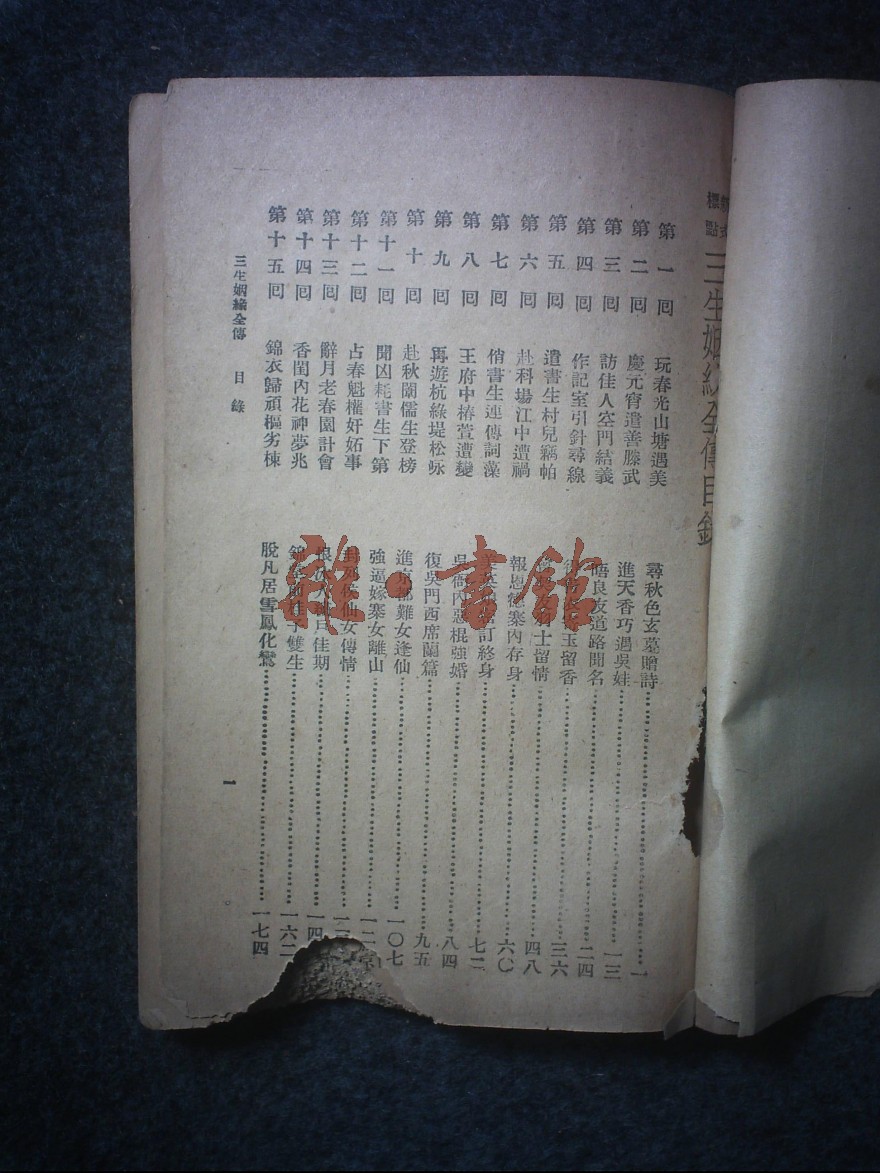 三生姻緣全傳目錄
第一回 玩春光山塘遇美 尋秋色玄墓贈詩 一
第二回 慶元宵遣善滕武 進天香巧遇吳娃 一三
第三回 訪佳人空門結義 晤良友道路聞名 二四
第四回 作記室引針尋線 玉留香 三六
第五回 遣書生村兒竊帕 士留情 四八
第六回 赴科場江中遭禍 報恩德寨內存身 六〇
第七回 俏書生連傳詞藻 訂終身 七二
第八回 王府中椿萱遭變 吳衙內惡棍強婚 八四
第九回 再遊杭綠堤松咏 復吳門西席蘭篇 九五
第十回 赴秋闈儒生登榜 進京都難女逢仙 一〇七
第十一回 聞凶耗書生下第 強逼嫁寨女離山 一二
第十二回 占春魁權奸妬事 仙女傳情 一三
第十三回 辭月老春園計會 佳期 一四
第十四回 香閨內花神夢兆 雙生 一六二
第十五回 錦衣歸頑樞劣棟 脫凡居雪鳳化鸞 一七四
三生姻緣全傳 目錄
一
雜·書館